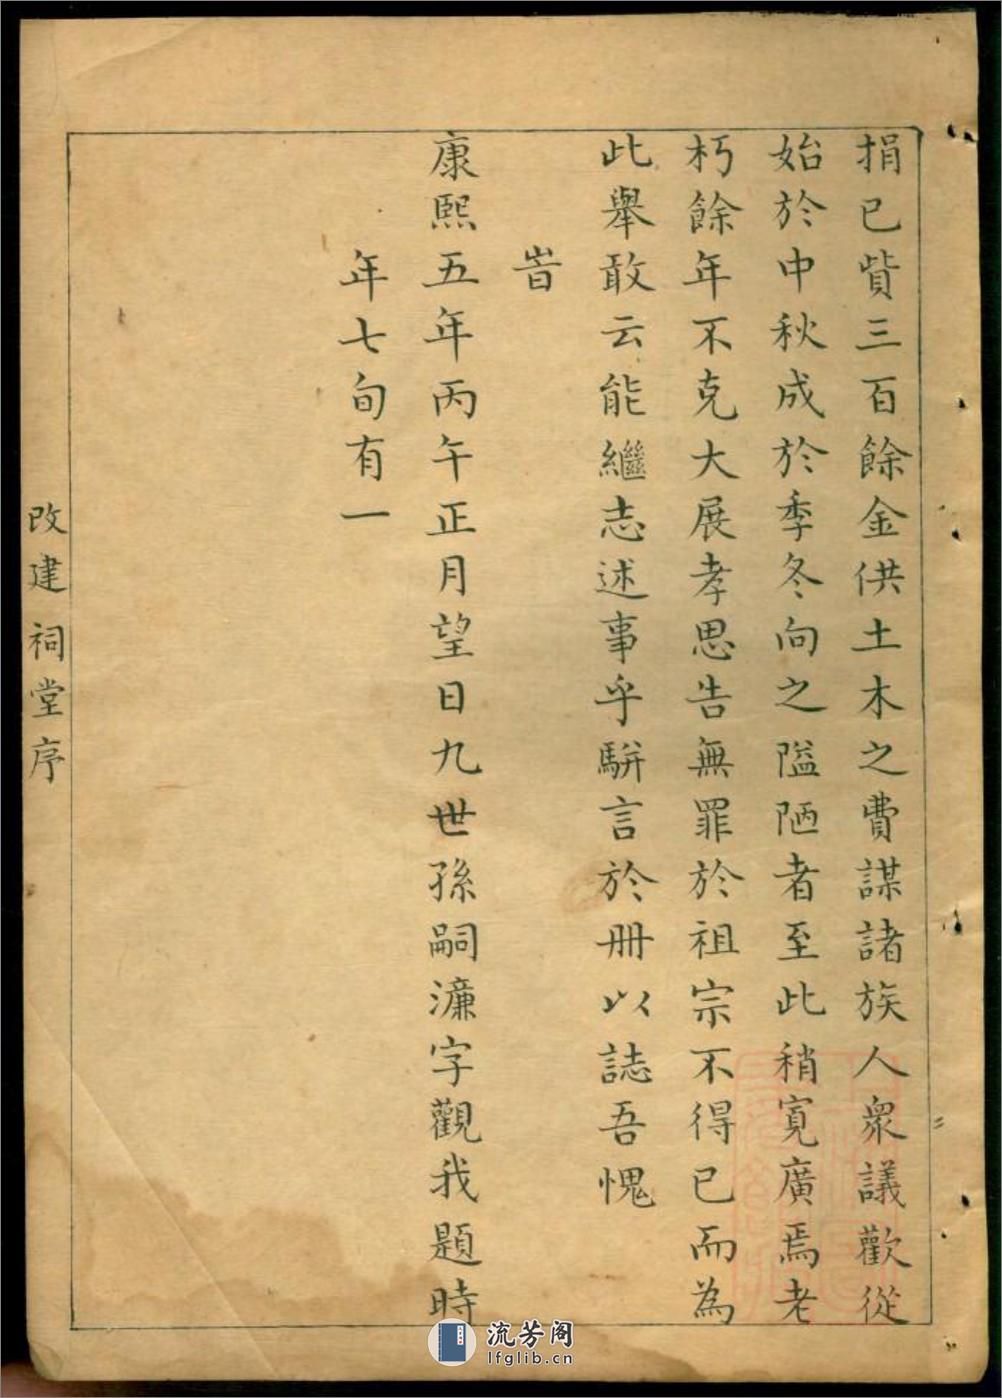 捐已貲三百餘金供土木之費謀諸族人衆議歡從
始於中秋成於季冬向之隘陋者至此稍寬廣焉老
朽餘年不克大展孝思告無罪於祖宗不得已而為
此舉敢云能繼志述事乎駢言於冊以誌吾愧
旹
康熙五年丙午正月望日九世孫嗣濂字觀我題時
年七旬有一
改建祠堂序
流芳阁
lfglib.cn